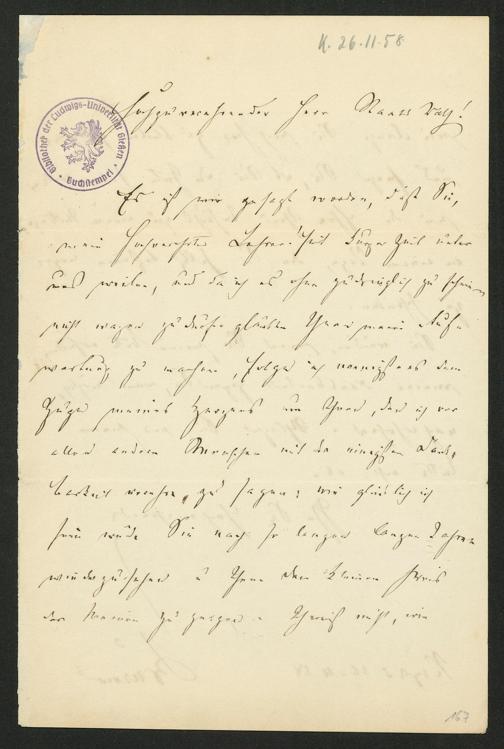 K. 26.11.58
Bibliothek der Ludwigs-Universität Gießen
Buchstempel
Hochzuverehrender Herr Staats Rath!
Es ist mir gesagt worden, daß Sie,
mein hochverehrter Lehrer! seit kurzer Zeit unter
uns weilen, und da ich es ohne zudringlich zu schein
nicht wagen zu dürfen glaubte Ihnen meine Aufw
wartung zu machen, folge ich wenigstens dem
Zuge meines Herzens um Ihnen, den ich vor
allen andern Menschen mit der innigsten Dank-
barkeit verehre, zu sagen: wie glücklich ich
sein würde Sie nach so langen langen Jahren
wiederzusehen u Ihnen den kleinen Kreis
der Meinen zu zeigen. Ich weiß nicht, wie
167